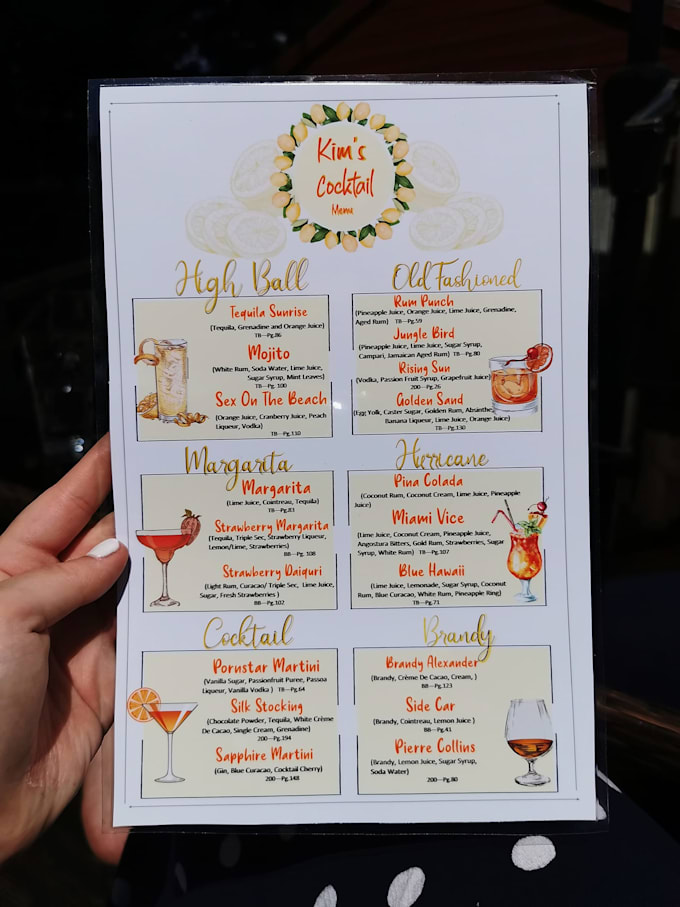 Kim's
Cocktail
Menu
High Ball
Tequila Sunrise
(Tequila, Grenadine and Orange Juice)
TB—Pg.86
Mojito
(White Rum, Soda Water, Lime Juice,
Sugar Syrup, Mint Leaves)
TB—Pg. 100
Sex On The Beach
(Orange Juice, Cranberry Juice, Peach
Liqueur, Vodka)
TB—Pg.110
Old Fashioned
Rum Punch
(Pineapple Juice, Orange Juice, Lime Juice, Grenadine,
Aged Rum) TB—Pg.59
Jungle Bird
(Pineapple Juice, Lime Juice, Sugar Syrup,
Campari, Jamaican Aged Rum) TB—Pg.80
Rising Sun
(Vodka, Passion Fruit Syrup, Grapefruit Juice)
200—Pg.26
Golden Sand
(Egg Yolk, Caster Sugar, Golden Rum, Absinthe,
Banana Liqueur, Lime Juice, Orange Juice)
TB—Pg.130
Margarita
Margarita
(Lime Juice, Cointreau, Tequila)
TB—Pg.83
Strawberry Margarita
(Tequila, Triple Sec, Strawberry Liqueur,
Lemon/Lime, Strawberries)
BB—Pg. 108
Strawberry Daiquri
(Light Rum, Curacao/ Triple Sec, Lime Juice,
Sugar, Fresh Strawberries )
BB—Pg.102
Herricane
Pina Colada
(Coconut Rum, Coconut Cream, Lime Juice, Pineapple
Juice)
Miami Vice
(Lime Juice, Coconut Cream, Pineapple Juice,
Angostura Bitters, Gold Rum, Strawberries, Sugar
Syrup, White Rum) TB—Pg.107
Blue Hawaii
(Lime Juice, Lemonade, Sugar Syrup, Coconut
Rum, Blue Curacao, White Rum, Pineapple Ring)
TB—Pg.71
Cocktail
Pornstar Martini
(Vanilla Sugar, Passionfruit Puree, Passoa
Liqueur, Vanilla Vodka ) TB—Pg.64
Silk Stocking
(Chocolate Powder, Tequila, White Crème
De Cacao, Single Cream, Grenadine)
200—Pg.194
Sapphire Martini
(Gin, Blue Curacao, Cocktail Cherry)
200—Pg.148
Brandy
Brandy Alexander
(Brandy, Crème De Cacao, Cream, )
BB—Pg.123
Side Car
(Brandy, Cointreau, Lemon Juice )
BB—Pg.41
Pierre Collins
(Brandy, Lemon Juice, Sugar Syrup,
Soda Water)
200—Pg.80